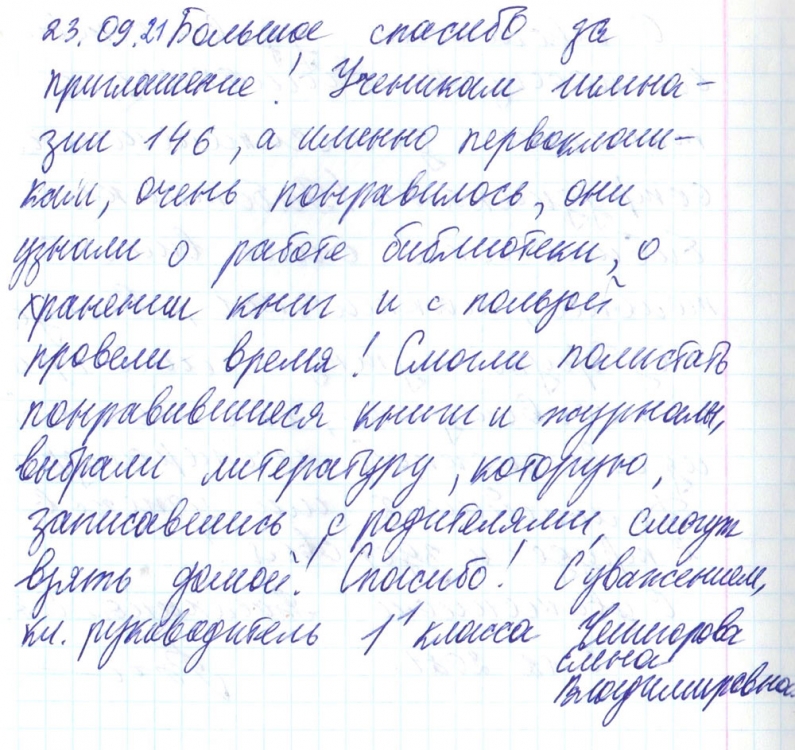 23.09.21 Большое спасибо за
приглашение! Ученикам гимна-
зии 146, а именно первоклаш-
кам, очень понравилось, они
узнали о работе библиотеки, о
хранении книг и с пользой
провели время! Смогли полистать
понравившиеся книги и журналы,
выбрали литературу, которую,
записавшись с родителями, смогут
взять домой! Спасибо! С уважением,
кл. руководитель 1¹ класса
Елена
Владимировна